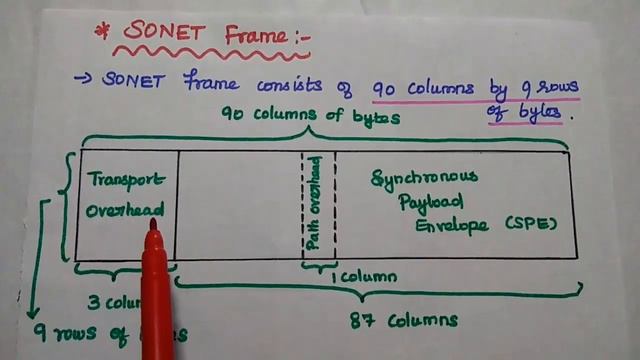 * SONET Frame:-
→ SONET frame consists of 90 columns by 9 rows
of bytes.
90 columns of bytes
Transport
Overhead
Path overhead
Synchronous
Payload
Envelope (SPE)
1 column
3
87 columns
9 rows of